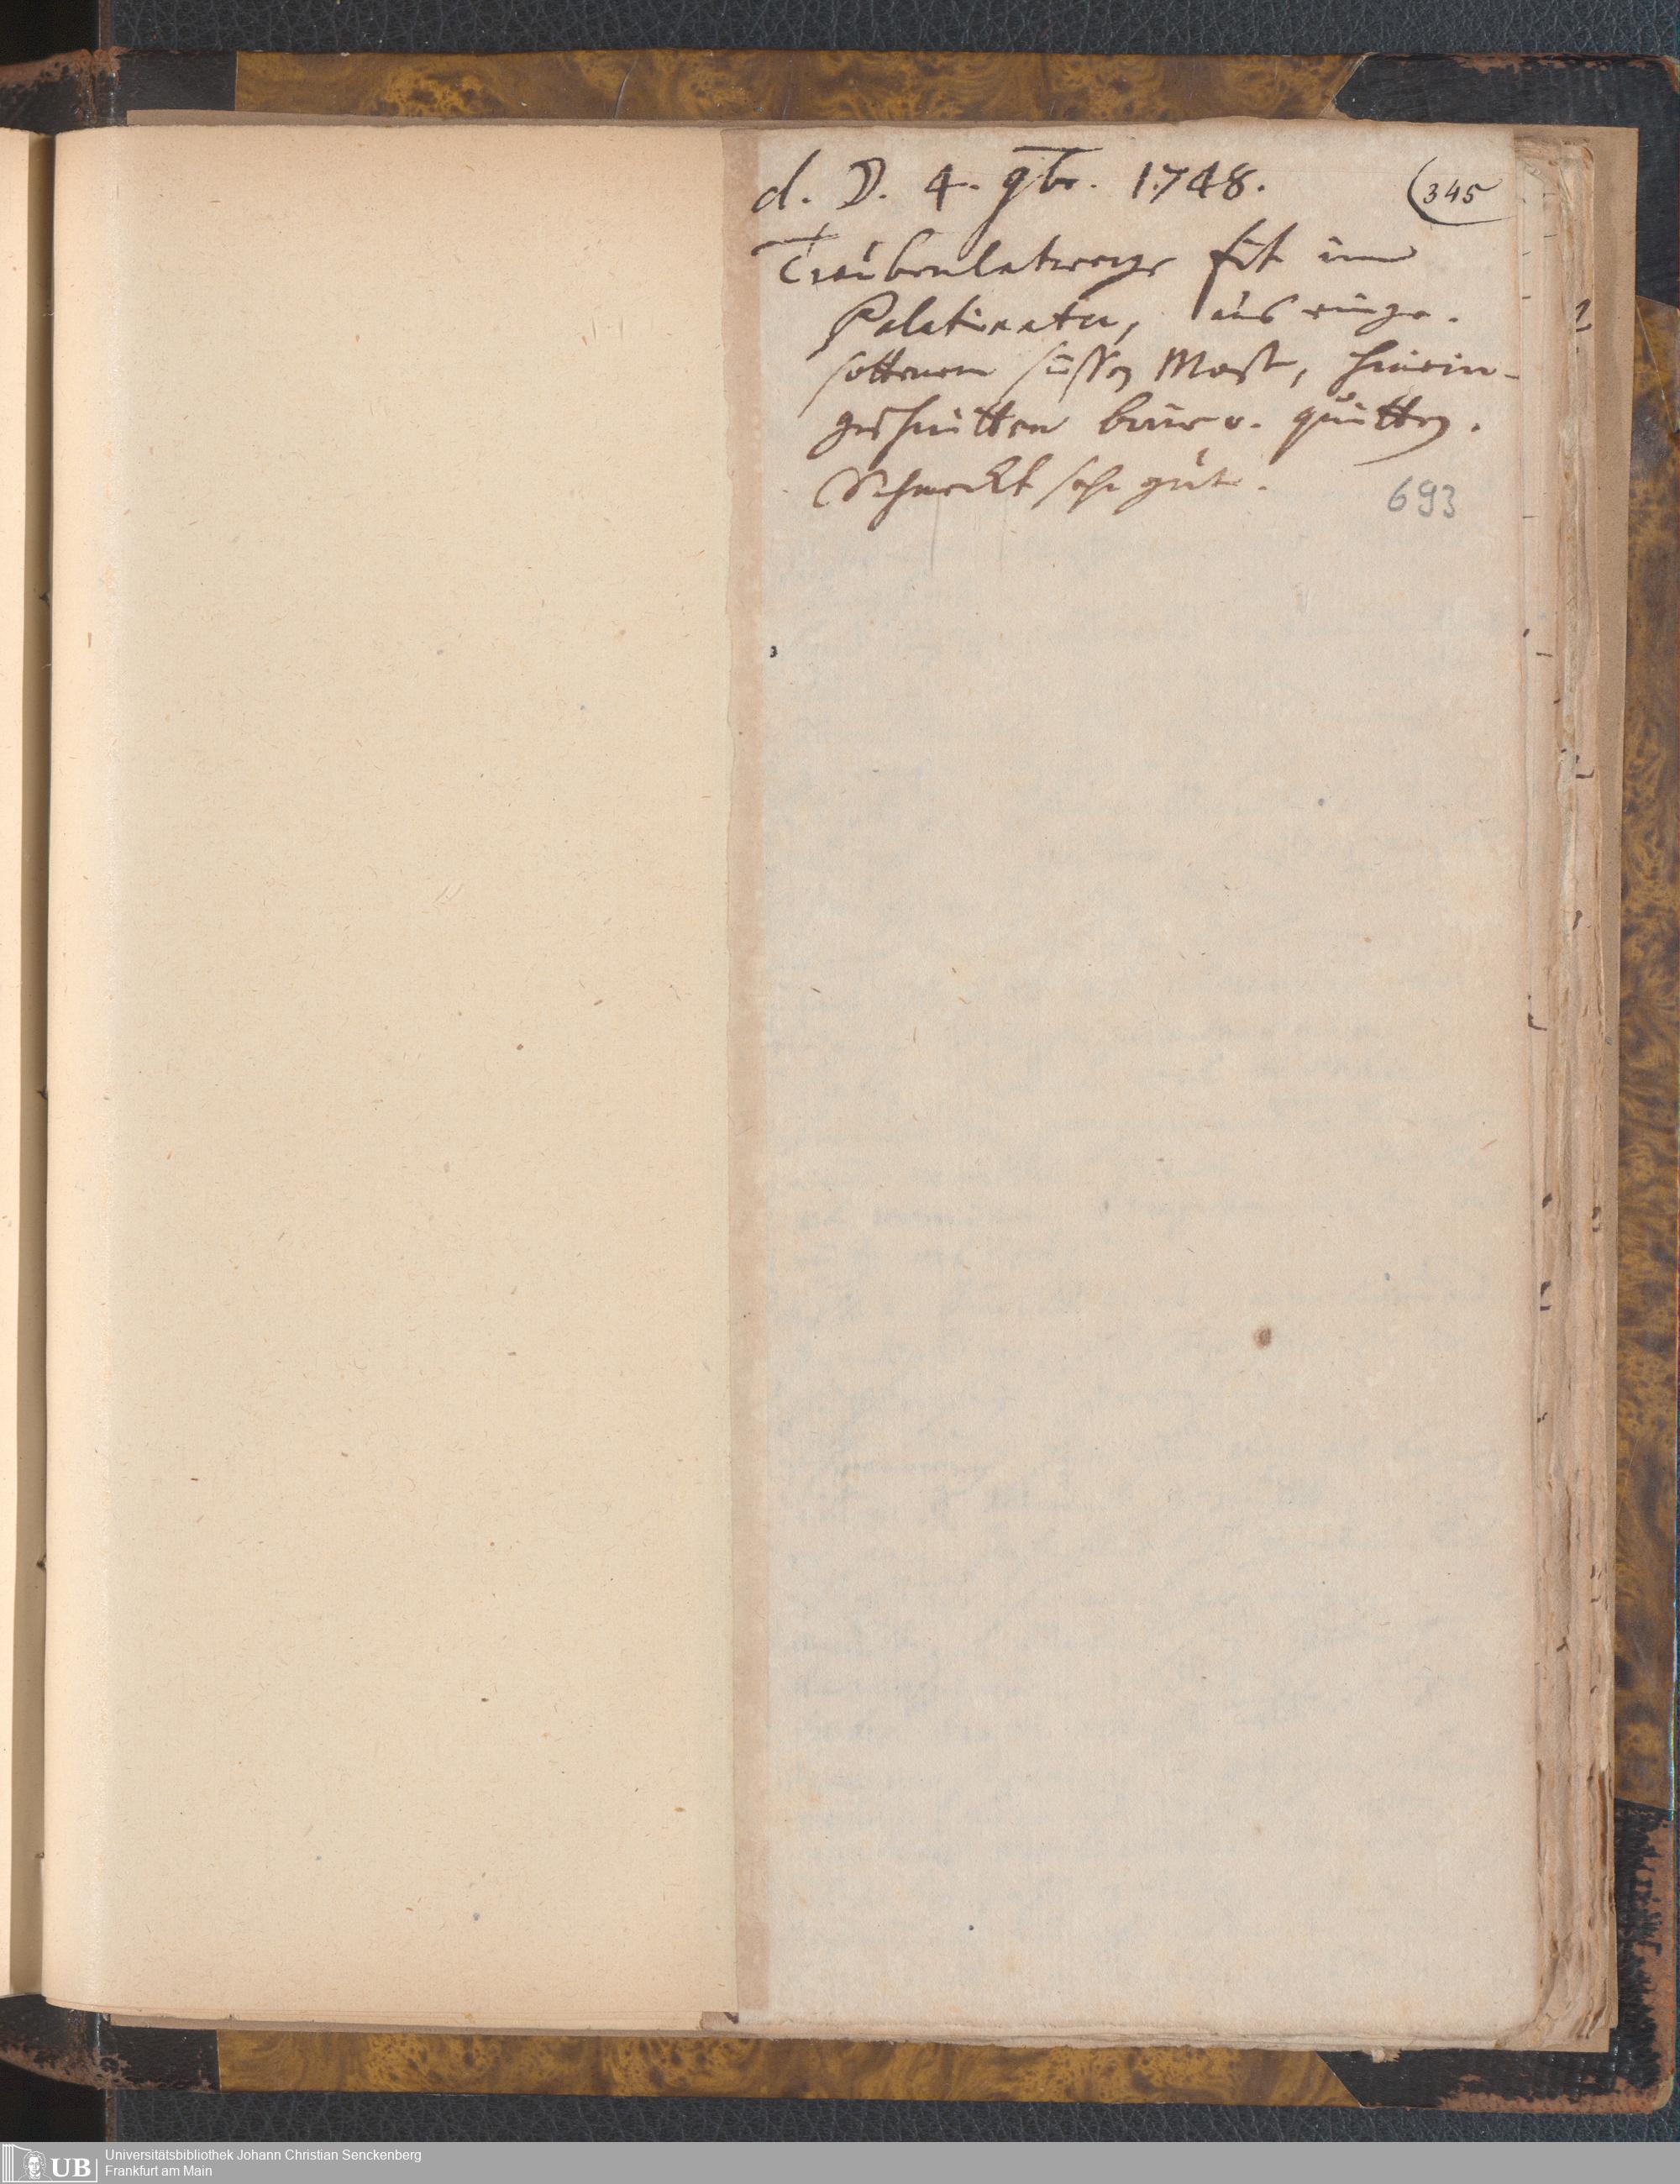 d. D. 4. 9br. 1748. (345
Traubenlatwerge fit im
Palatinatu, aus einge-
sottenem süssen Most, hinein-
geschnitten birn v. quitten.
Schmeckt sehr gut.
693
UB Universitätsbibliothek Johann Christian Senckenberg
Frankfurt am Main